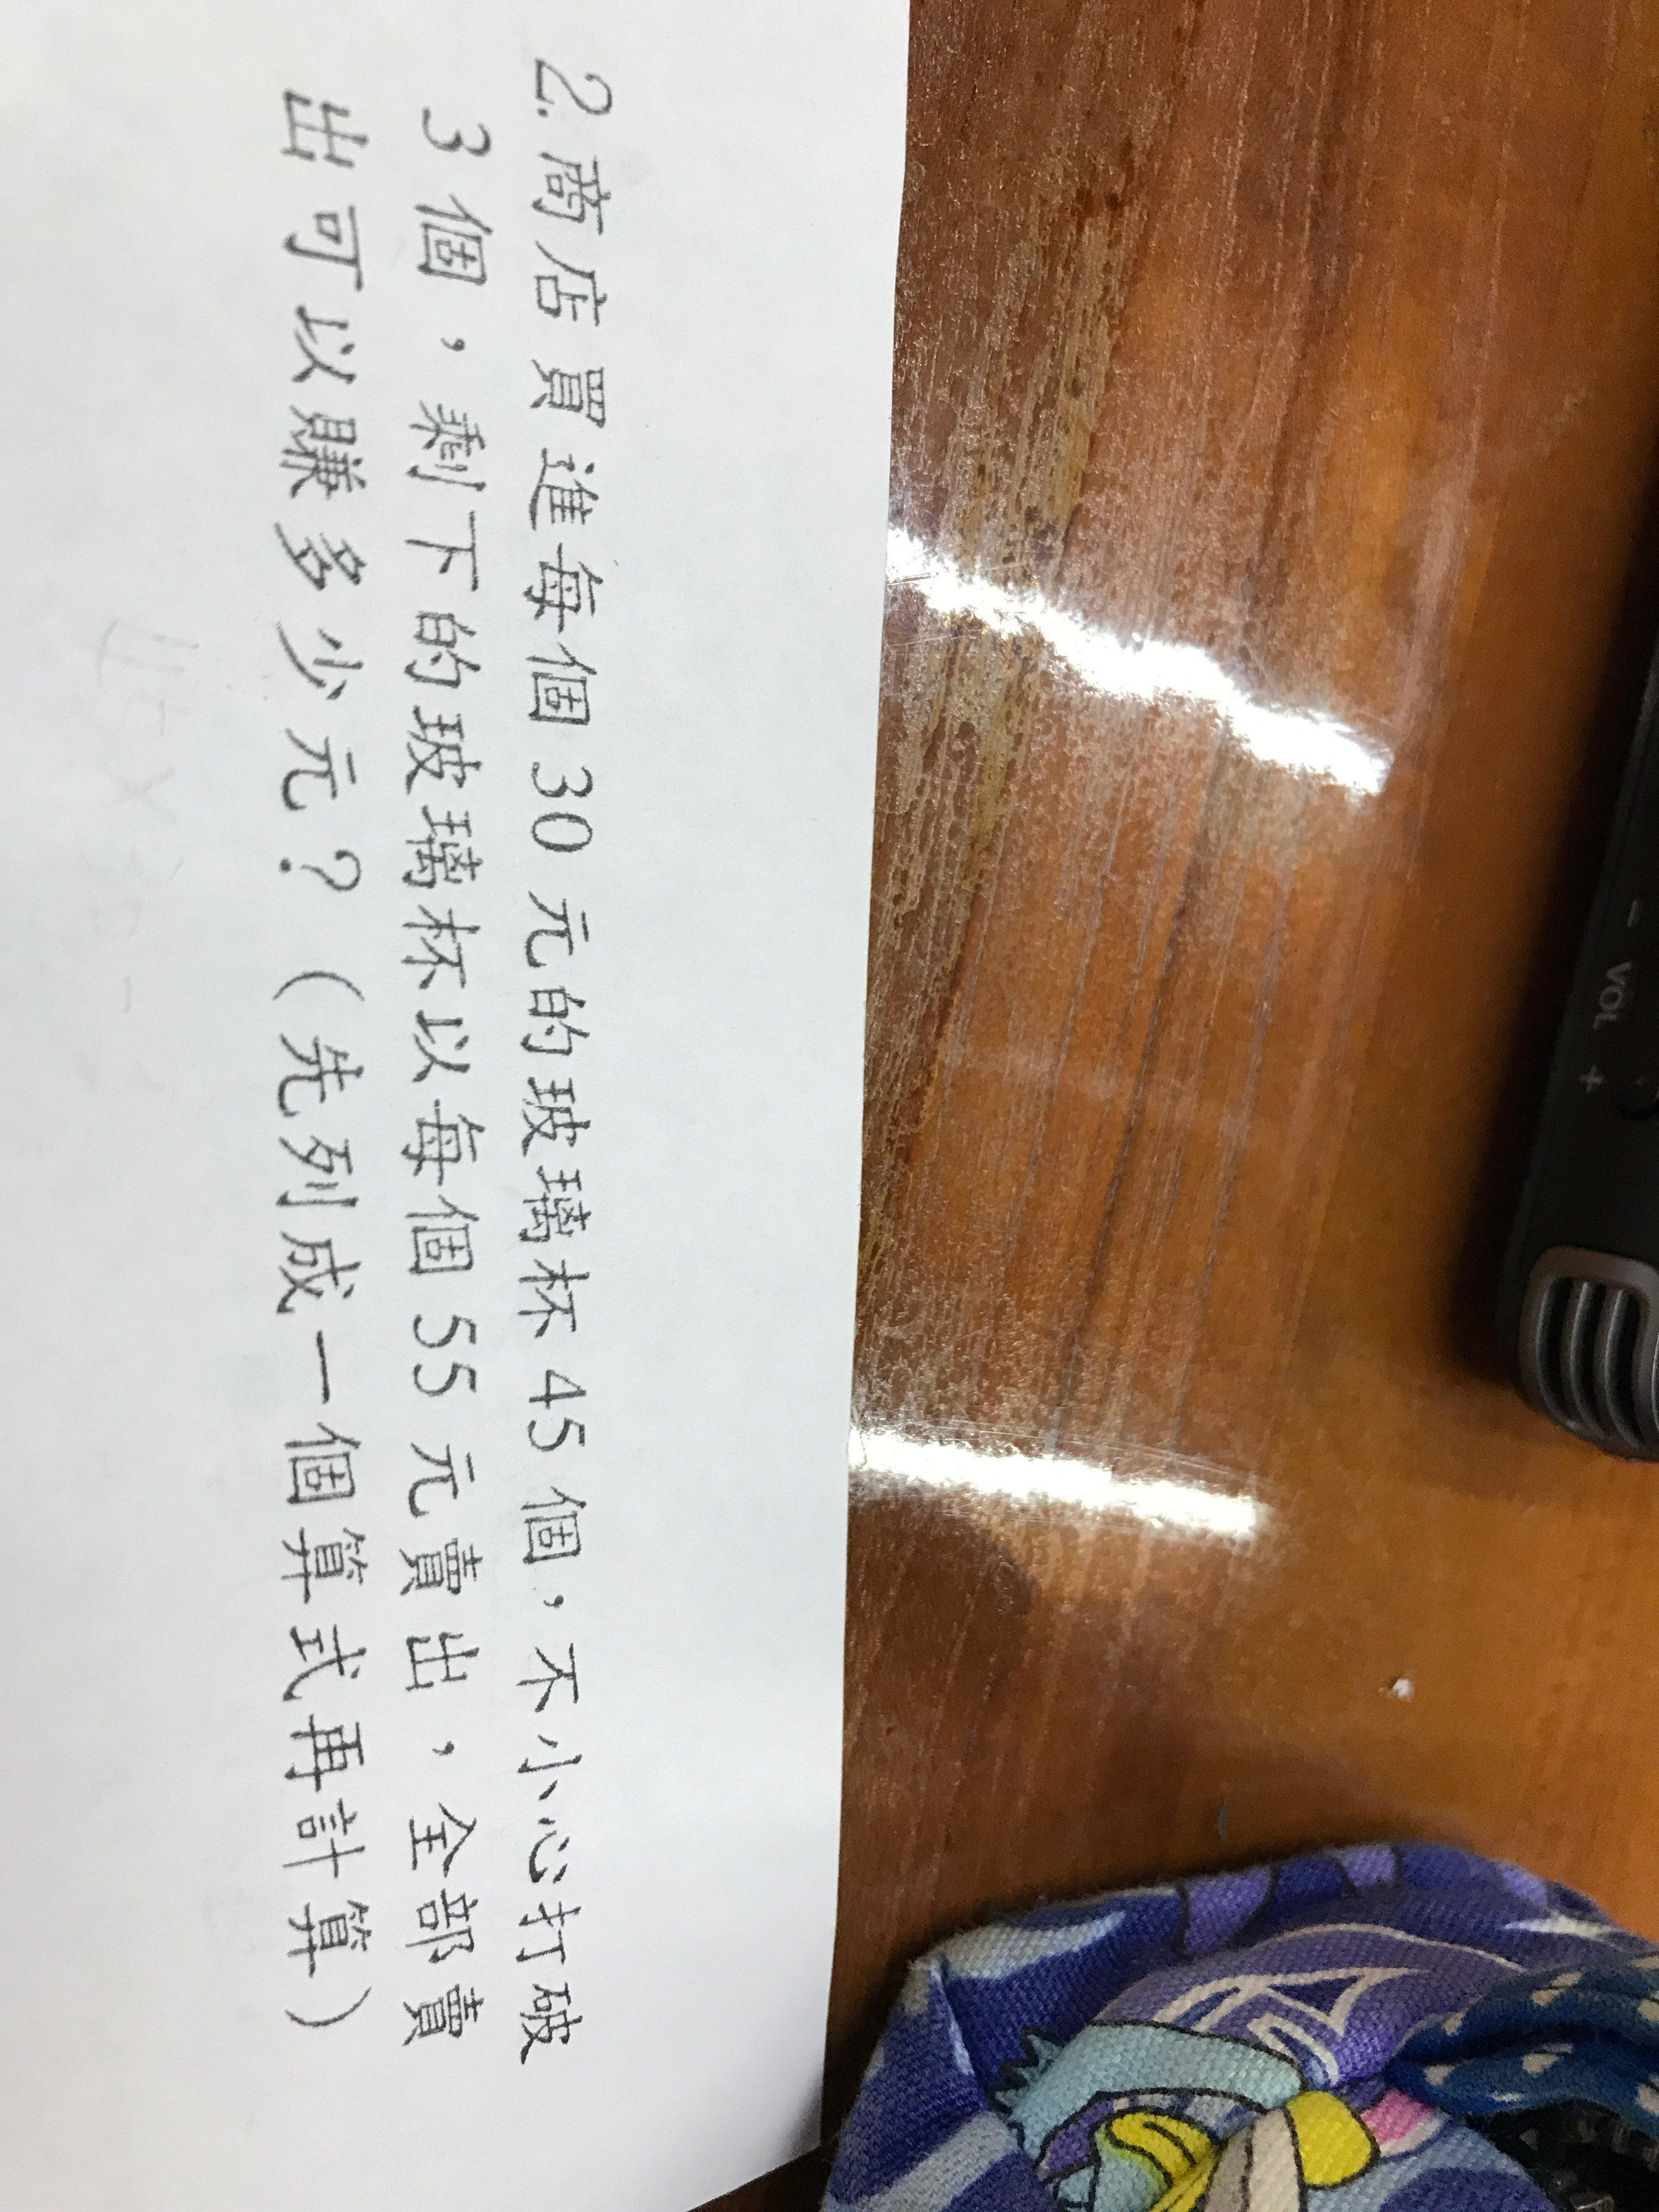 2.商店買進每個30元的玻璃杯45個，不小心打破
3個，剩下的玻璃杯以每個55元賣出，全部賣
出可以賺多少元？（先列成一個算式再計算）
- VOL +